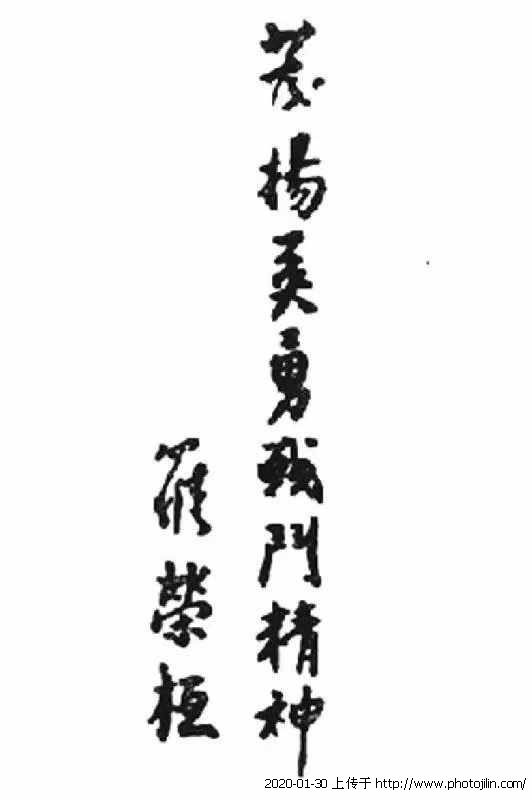 發揚英勇戰鬥精神
羅榮桓
2020-01-30 上传于 http://www.photojilin.com/